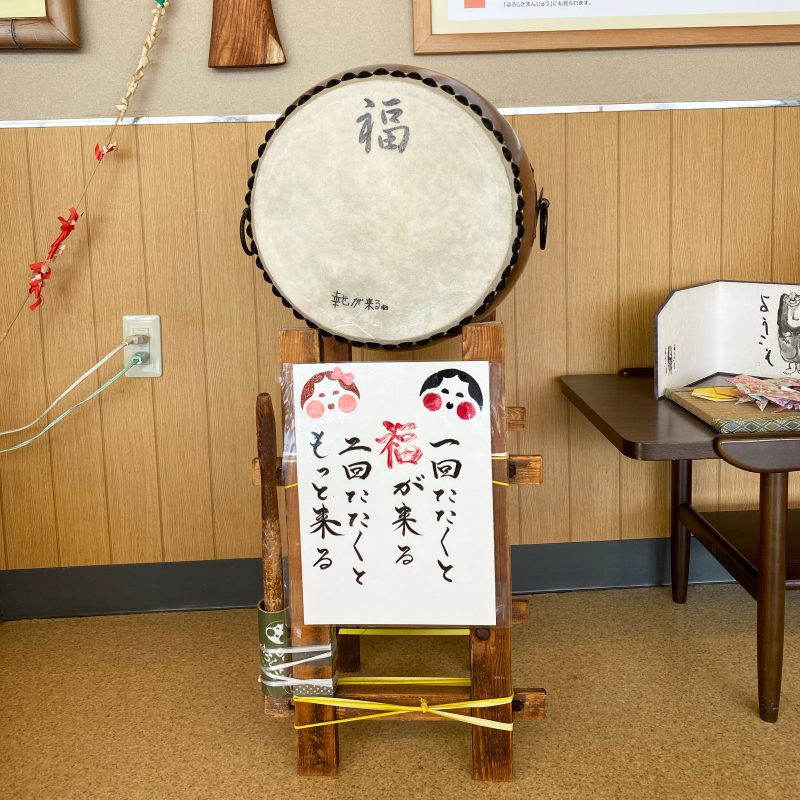 「ふろしきまんじゅう」にも見られます。
福
幸せが来るね
一回たたくと
福が来る
二回たたくと
もっと来る